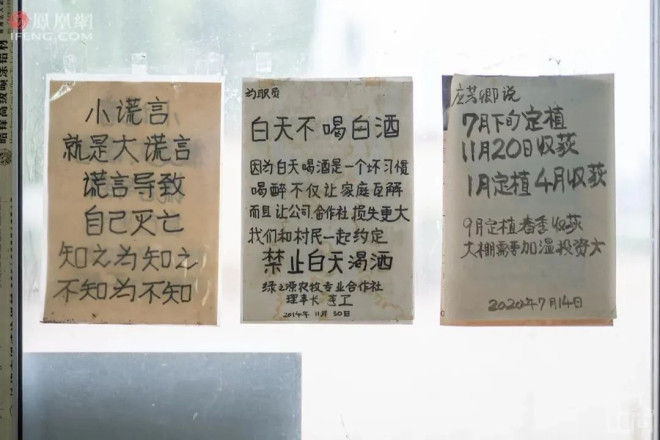 凤凰網
IFENG.COM
小谎言
就是大谎言
谎言导致
自己灭亡
知之为知之
不知为不知
为职员
白天不喝白酒
因为白天喝酒是一个坏习惯
喝醉不仅让家庭瓦解
而且让公司、合作社损失更大
我们和村民一起约定
禁止白天渴酒
绿之源农牧专业合作社
理事长 李工
2014年11月30日
7月下旬定植
11月20日收获
1月定植4月收获
9月定植春季收获
大棚需要加温投资大
2020年7月14日